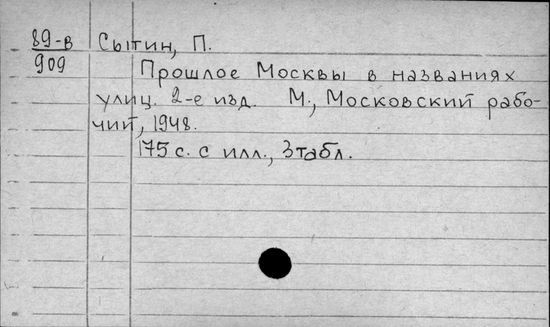 89-в Сытин, П.
909
Прошлое Москвы в названиях
улиц. 2-е изд. М., Московский рабо-
чий, 1948.
175 с. с илл., 3 табл.